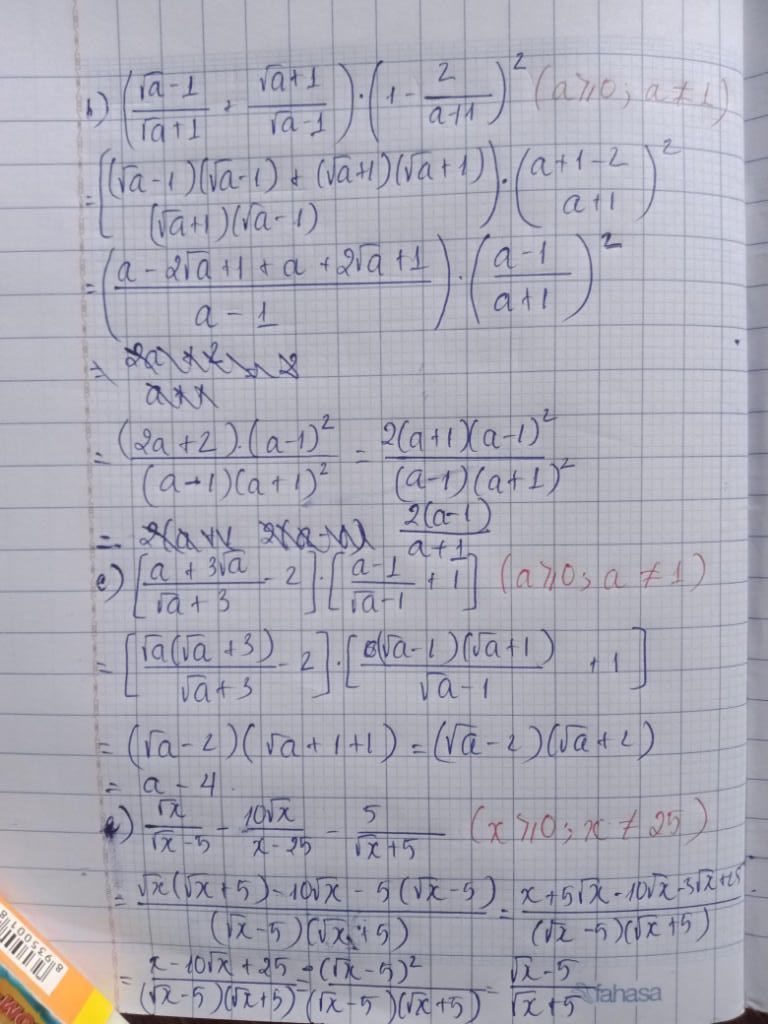 b) ((√a-1)/(√a+1) + (√a+1)/(√a-1)) · (1 - 2/(a+1))² (a⩾0; a≠1)
= [((√a-1)(√a-1) + (√a+1)(√a+1))/((√a+1)(√a-1))] · ((a+1-2)/(a+1))²
= ((a-2√a+1+a+2√a+1)/(a-1)) · ((a-1)/(a+1))²
= ((2a+2).(a-1)²)/((a-1)(a+1)²) = (2(a+1)(a-1)²)/((a-1)(a+1)²)
= (2(a-1))/(a+1)
c) [(a+3√a)/(√a+3) - 2] · [(a-1)/(√a-1) + 1] (a⩾0; a≠1)
= [(√a(√a+3))/(√a+3) - 2] · [((√a-1)(√a+1))/(√a-1) + 1]
= (√a-2)(√a+1+1) = (√a-2)(√a+2)
= a-4.
) √x/(√x-5) - 10√x/(x-25) - 5/(√x+5) (x⩾0; x≠25)
= (√x(√x+5)-10√x-5(√x-5))/((√x-5)(√x+5)) = (x+5√x-10√x-5√x+25)/((√x-5)(√x+5))
= (x-10√x+25)/((√x-5)(√x+5)) = (√x-5)²/((√x-5)(√x+5)) = (√x-5)/(√x+5)
fahasa
8 935001